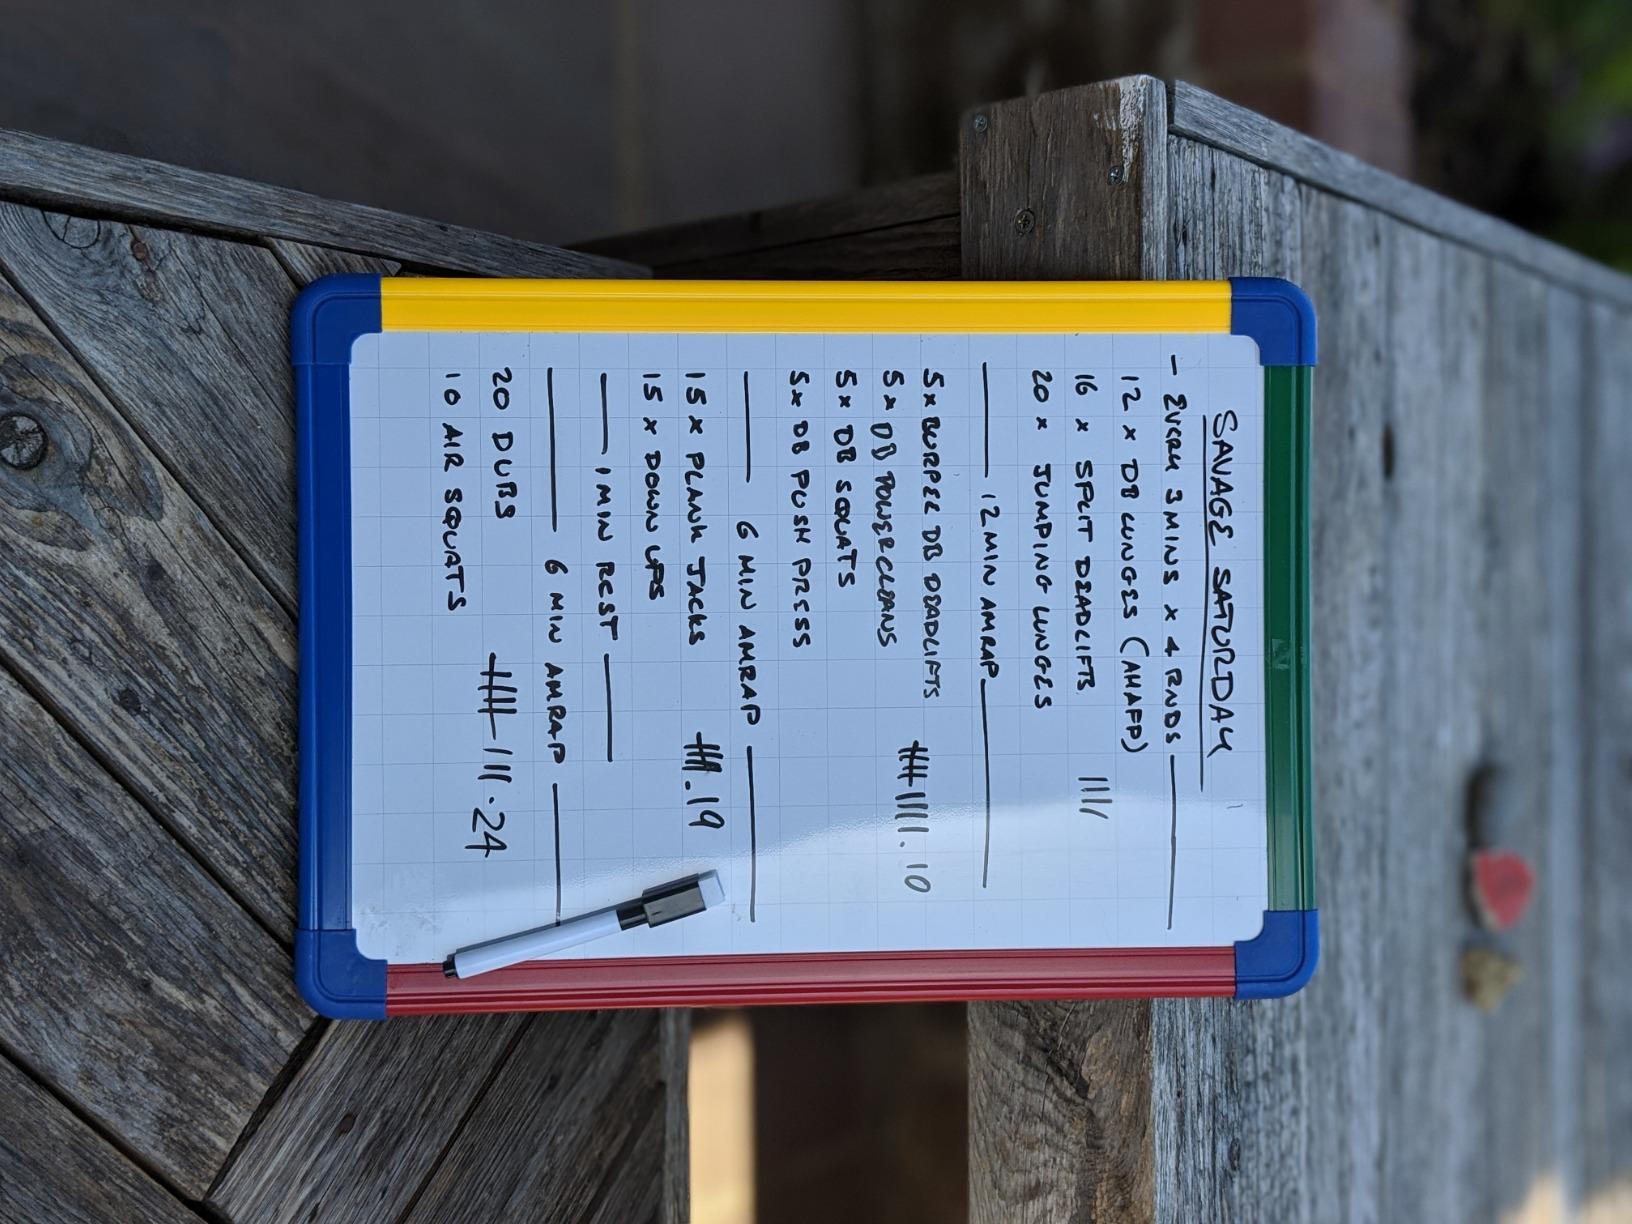 SAVAGE SATURDAY
- EVERY 3 MINS x 4 RNDS
12 x DB LUNGES (AHAFP)
16 x SPLIT DEADLIFTS
20 x JUMPING LUNGES
12 MIN AMRAP
5 x BURPEE DB DEADLIFTS
5 x DB POWERCLEANS
5 x DB SQUATS
5 x DB PUSH PRESS
.10
6 MIN AMRAP
15 x PLANK JACKS
15 x DOWN UPS
.19
1 MIN REST
6 MIN AMRAP
20 DUBS
10 AIR SQUATS
.24